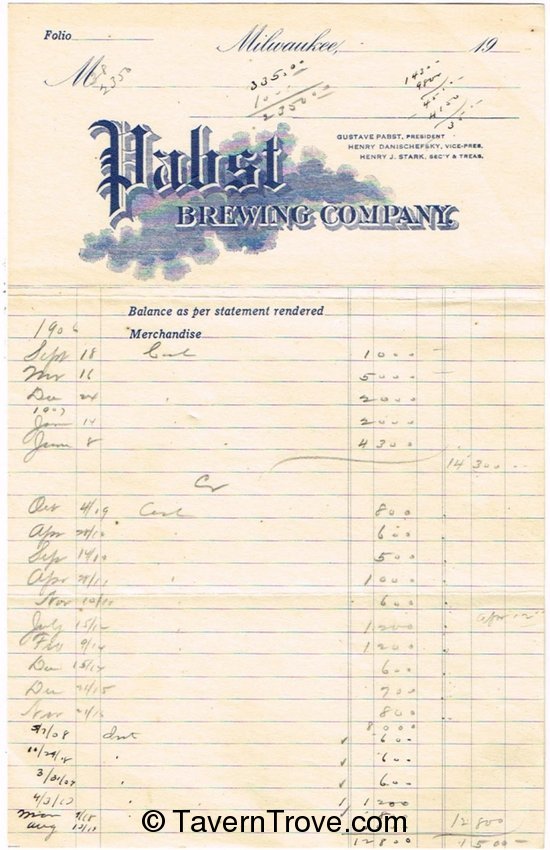 Folio
Milwaukee, 19
M
2350
335.00
2350.00
PABST
BREWING COMPANY.
GUSTAVE PABST, PRESIDENT
HENRY DANISCHEFSKY, VICE-PRES.
HENRY J. STARK, SEC'Y & TREAS.
Balance as per statement rendered
1906 Merchandise
Sept 18 Cash 1000
Nov 16 5000
Dec 24 2000
1907
Jan 14 2000
June 8 4300
14300
Cr
Oct 4/19 Cash 800
Apr 600
Sep 14/10 500
Apr 1000
Nov 600
July 15/12 1200
9/14 1200
Dec 15/14 600
Dec 21/15 700
Nov 800
8000
5/7/08 Int 600
600
600
4/3/10 1200
Aug 12800
12800 1500
© TavernTrove.com